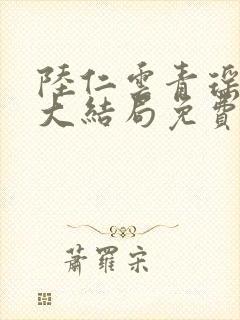 陸仁雲青瑤
大結局免費
蕭羅宋